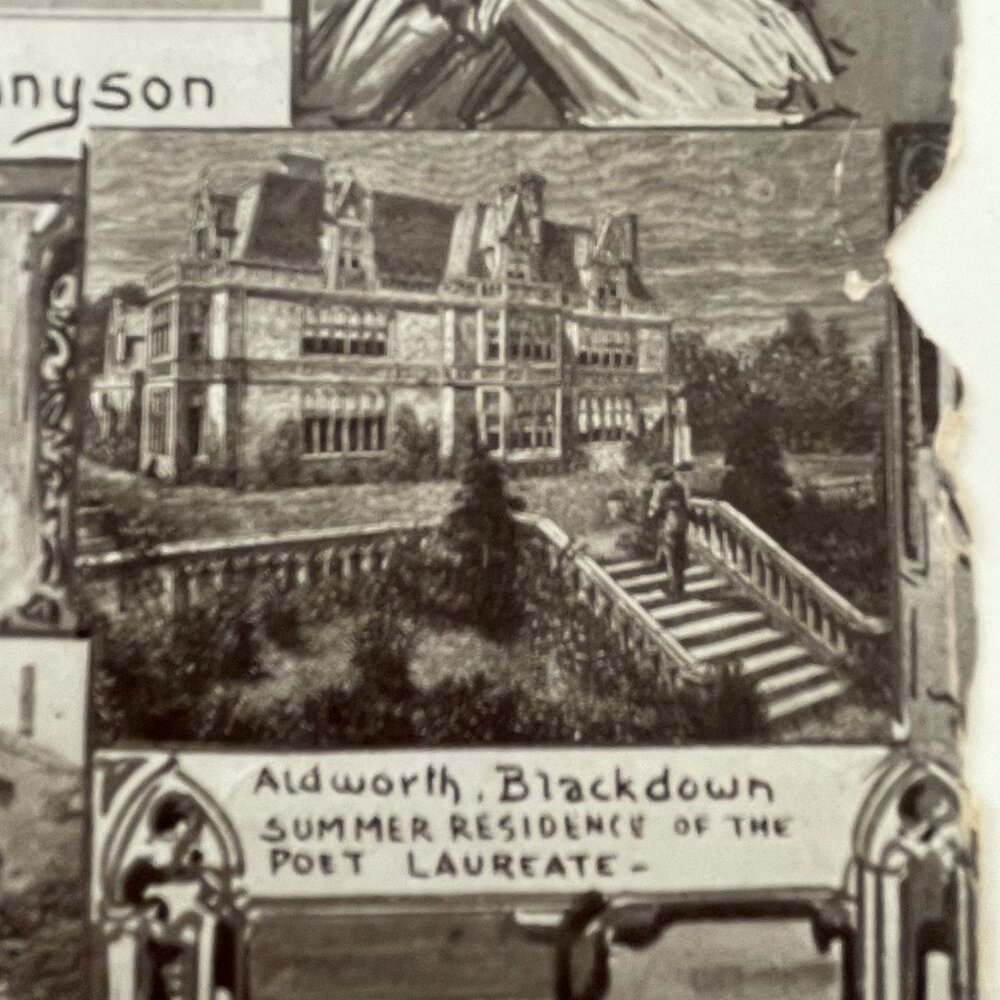 nnyson
Aldworth, Blackdown
SUMMER RESIDENCE OF THE
POET LAUREATE-